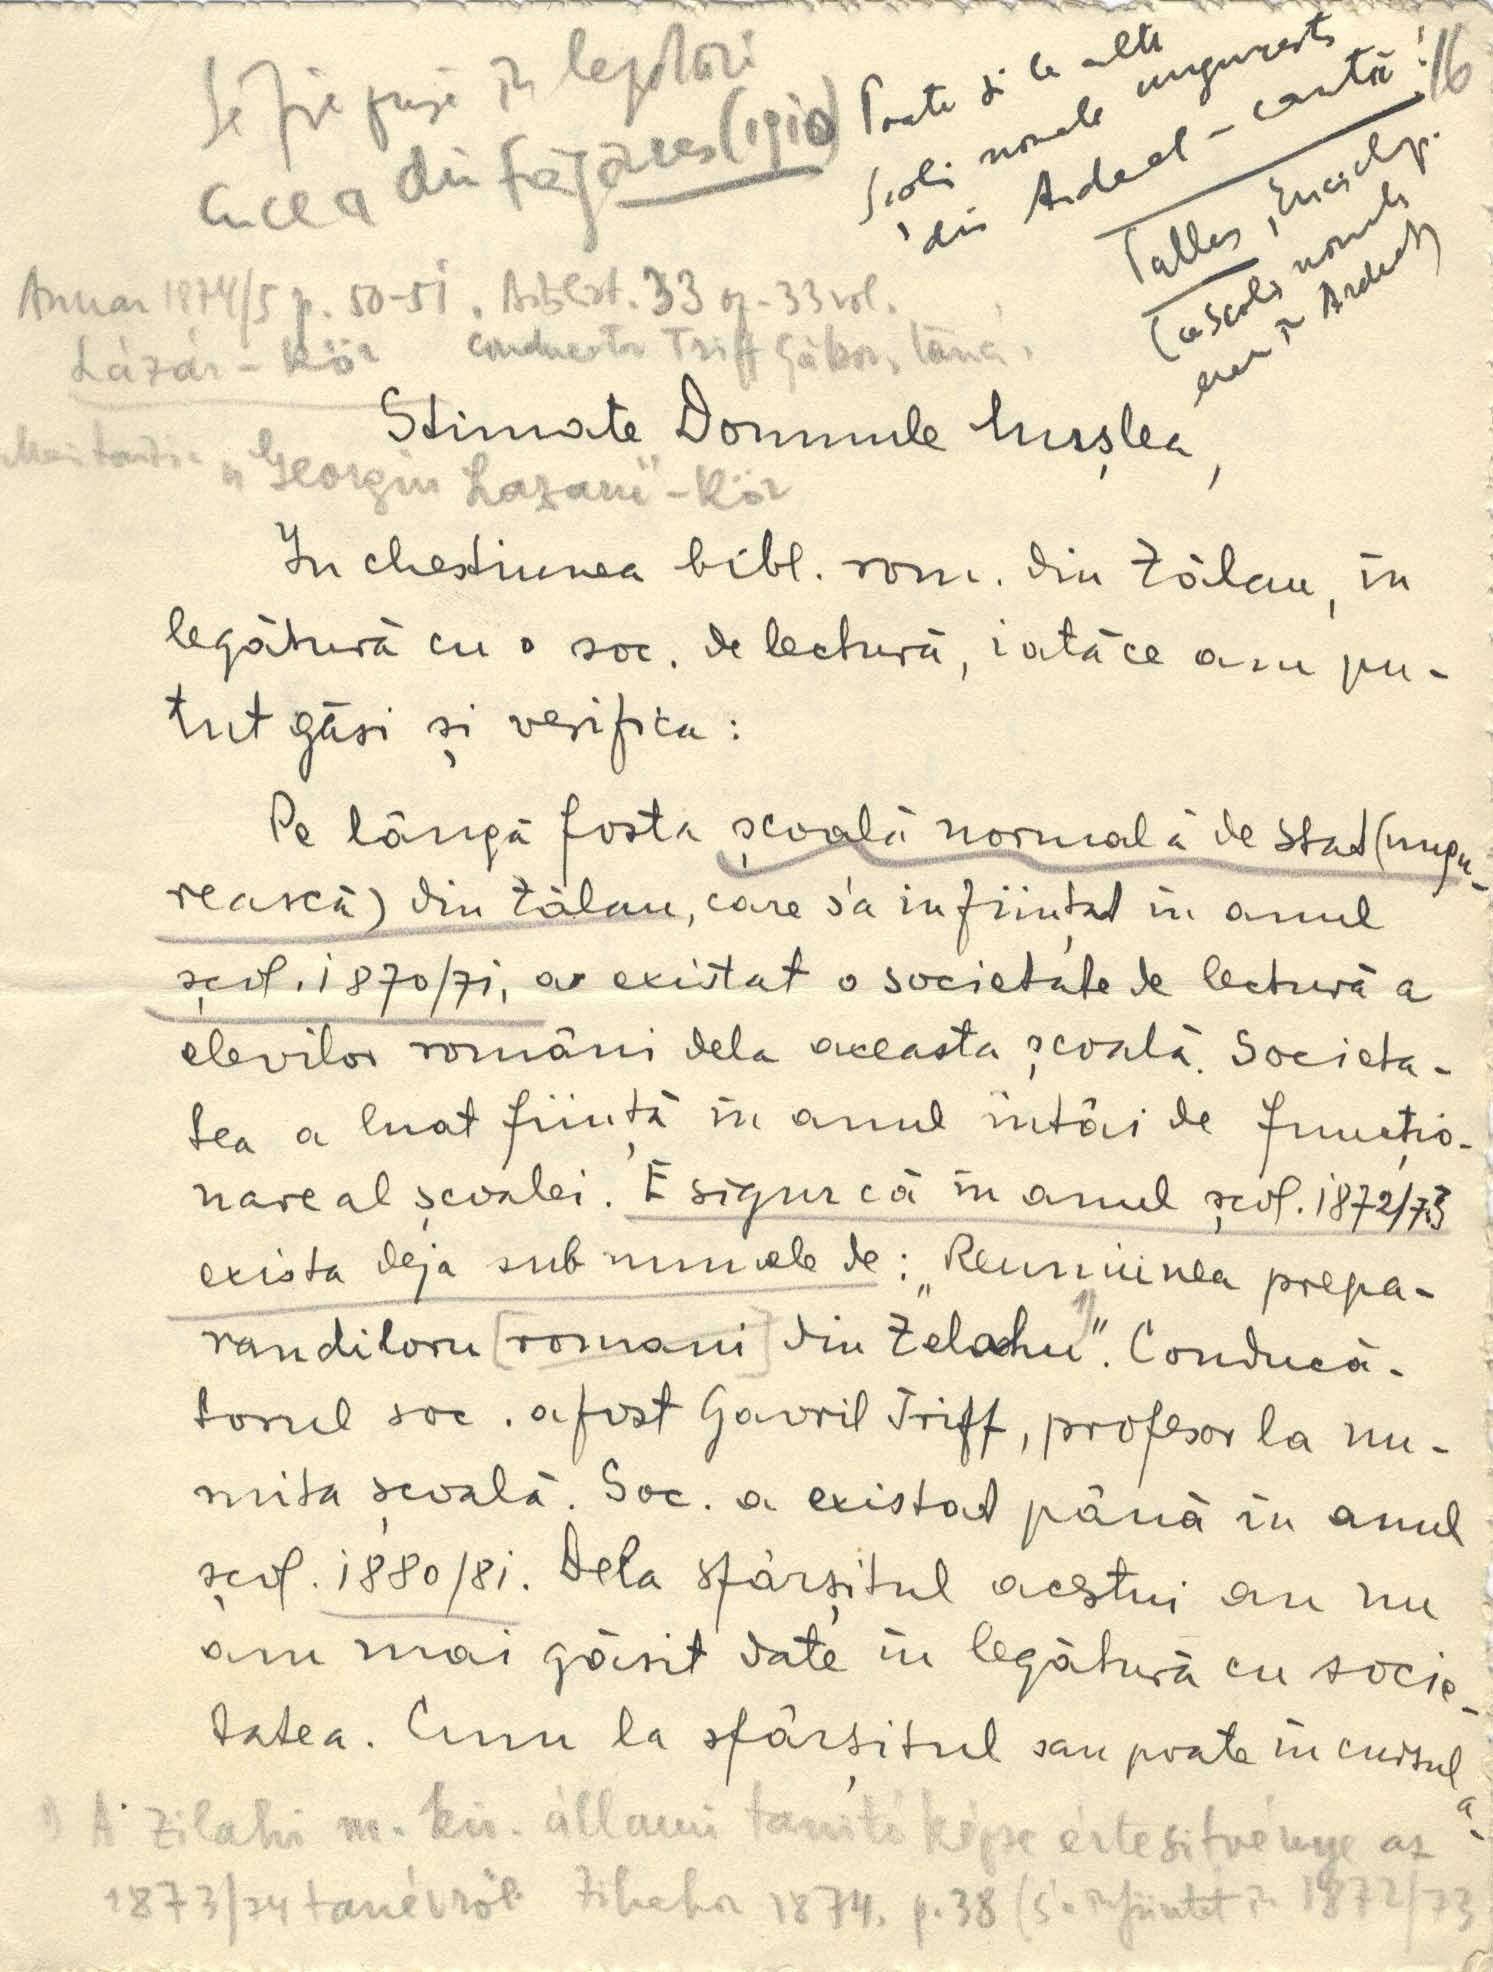 16
Să fie puși în legătură
cu cea din Făgăraș (1910)
Poate și la alte
școli normale ungurești
din Ardeal – caută!
Pallas, Enciclop.
(ce școli normale
erau în Ardeal)
Anuar 1874/5 p. 50-51. 33 op. - 33 vol.
Lázár-Kör conducător Triff Gábor, tanár.
„Georgiu Lazaru"-Kör
Stimate Domnule Mușlea,
In chestiunea bibl. rom. din Zălau, în
legătură cu o soc. de lectură, iată ce am pu-
tut găsi și verifica:
Pe lângă fosta școală normală de stat (ungu-
rească) din Zălau, care s'a înființat în anul
școl. 1870/71, a existat o societate de lectură a
elevilor români dela aceasta școală. Societa-
tea a luat ființă în anul întâi de funcțio-
nare al școalei. E sigur că în anul școl. 1872/73
exista deja sub numele de: „Reuniunea prepa-
randiloru [romani] din Zelahu 1)". Conducă-
torul soc. a fost Gavril Triff, profesor la nu-
mita școală. Soc. a existat până în anul
școl. 1880/81. Dela sfârșitul acestui an nu
am mai găsit date în legătură cu socie-
tatea. Cum la sfârșitul sau poate în cursul
a-
1) A zilahi m. kir. állami tanítóképze értesítvénye az
1873/74 tanévről. Zilahon 1874. p. 38 (s'a înființat în 1872/73